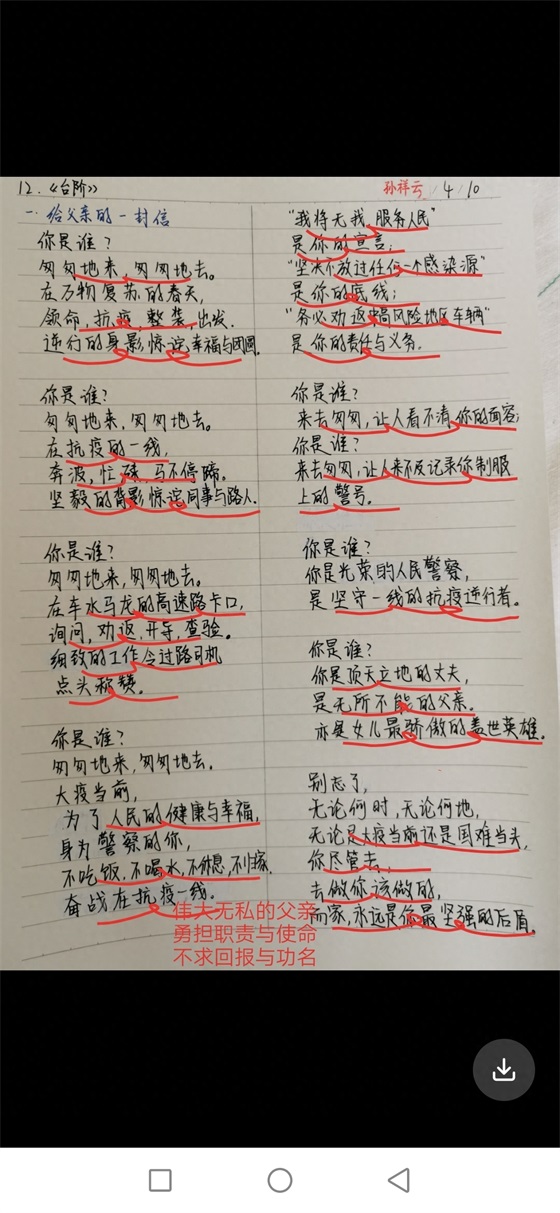 12.《台阶》
孙祥云 4/10
一. 给父亲的一封信
你是谁？
匆匆地来，匆匆地去。
在万物复苏的春天，
领命，抗疫，整装，出发.
逆行的身影惊诧幸福与团圆.
你是谁？
匆匆地来，匆匆地去.
在抗疫的一线，
奔波，忙碌，马不停蹄。
坚毅的背影惊诧同事与路人.
你是谁？
匆匆地来，匆匆地去。
在车水马龙的高速路卡口，
询问，劝返，开导，查验。
细致的工作令过路司机
点头称赞。
你是谁？
匆匆地来，匆匆地去.
大疫当前，
为了人民的健康与幸福，
身为警察的你，
不吃饭，不喝水，不休息，不归家.
奋战在抗疫一线.
"我将无我，服务人民"
是你的宣言；
"坚决不放过任何一个感染源"
是你的底线；
"务必劝返中高风险地区车辆"
是你的责任与义务.
你是谁？
来去匆匆，让人看不清你的面容；
你是谁？
来去匆匆，让人来不及记录你制服
上的警号.
你是谁？
你是光荣的人民警察，
是坚守一线的抗疫逆行者。
你是谁？
你是顶天立地的丈夫，
是无所不能的父亲.
亦是女儿最骄傲的盖世英雄.
别忘了，
无论何时，无论何地，
无论是大疫当前还是国难当头，
你尽管去，
去做你该做的，
而家，永远是你最坚强的后盾.
伟大无私的父亲
勇担职责与使命
不求回报与功名